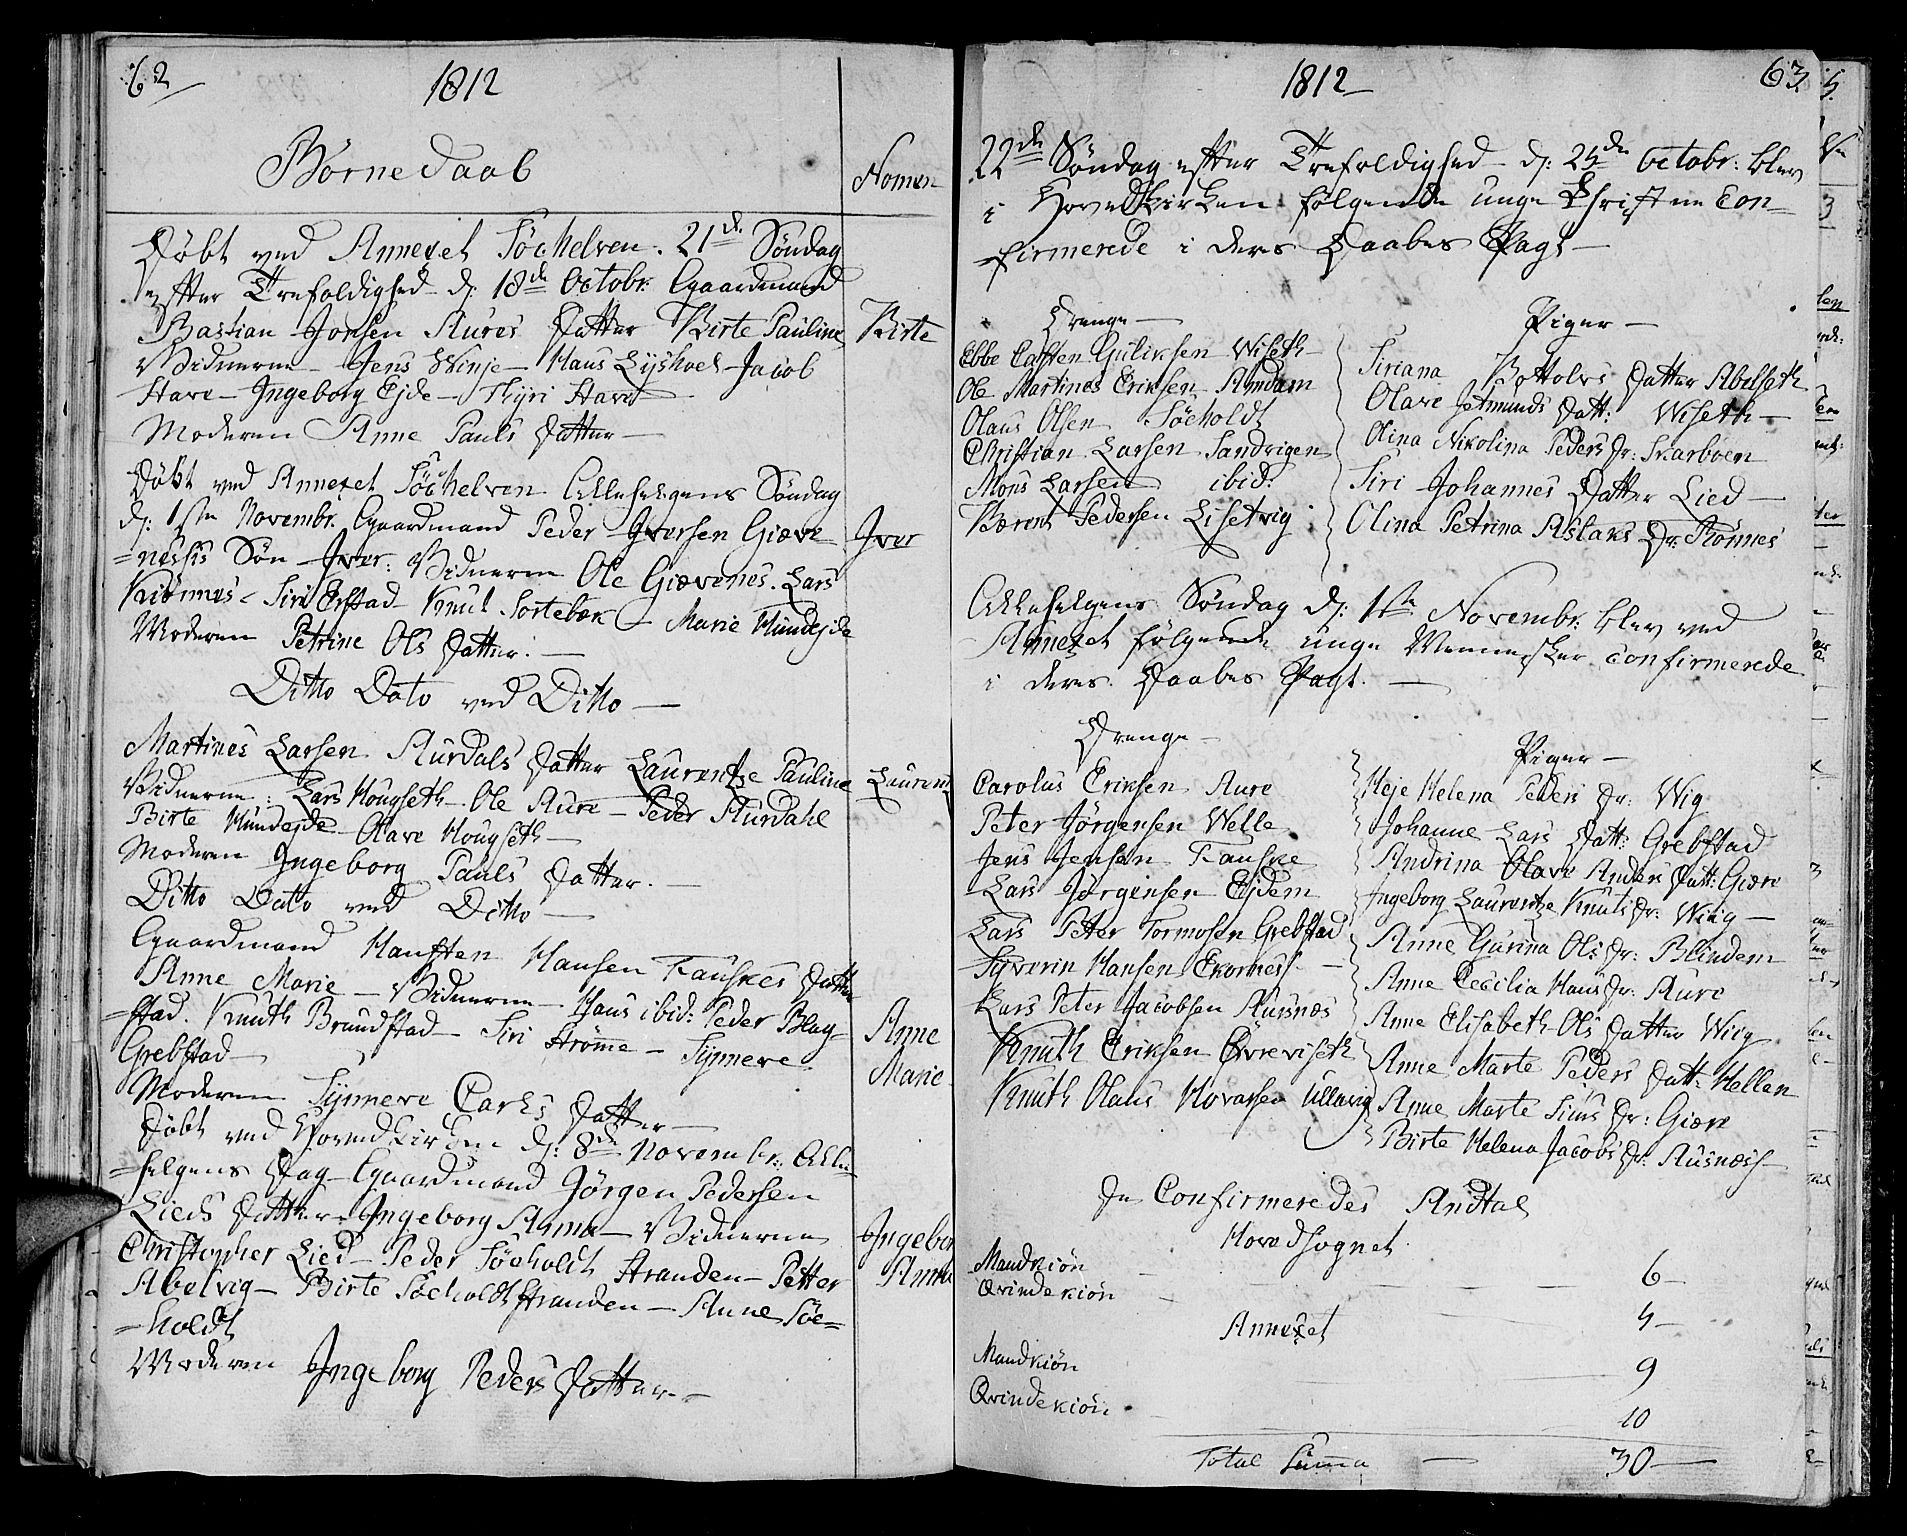 62
1812
Börne Daab
Nomen
Döbt ved Annexet Söchelven. 21de Söndag
efter Trefoldighed d: 18de Octobr. Gaardmand
Bastian Jonsen Aures Datter Birte Pauline
Birte
Vidnerne - Jens Winje - Hans Lyshoel - Jacob
Hare - Ingeborg Ejde - Thyri Hare
Moderen Anne Pauls Datter -
Döbt ved Annexet Söchelven Allehelgens Söndag
d: 1ste Novembr. Gaardmand Peder Iversen Giæve
Iver
=neses Sön Iver: Vidnerne Ole Giævenes. Lars
Kiönnes - Siri Erstad - Knut Sortebæk - Marie Hundejde
Moderen Petrine Ols Datter. -
Ditto Dato ved Ditto -
Martines Larsen Aurdals Datter Laurentze Pauline
Laurentz
Vidnerne: Lars Hougseth - Ole Aure - Peder Aurdahl
Birte Hundejde - Olave Hougseth -
Moderen Ingeborg Pauls Datter. -
Ditto Dato ved Ditto -
Gaardmand Hansten Hansen Fauskes Datter
Anne Marie - Vidnerne - Hans ibid: Peder Blag-
Anne
Marie
=stad. Knuth Brundstad - Siri Strömme - Synneve
Grebstad -
Moderen Synneve Carls Datter -
Döbt ved Hovedkirken d: 8de Novembr: Alle
=helgens Dag - Gaardmand Jörgen Pedersen
Lieds Datter - Ingeborg Anna - Vidnerne
Ingebor
Anna
Christopher Lied - Peder Söeholdt Stranden - Petter
Abelvig - Birte Söeholdt stranden - Anne Söe=
=holdt
Moderen Ingeborg Peders Datter -
1812
63
22de Söndag efter Trefoldighed d: 25de Octobr: blev
i Hovedkirken følgende unge Christne Con=
firmerede i deres Daabes Pagt -
Drenge -
Ebbe Casten Guliksen Wiseth
Ole Martines Eriksen Amdam
Olaus Olsen Söeholdt
Christian Larsen Sandvigen
Mons Larsen ibid:
Bærent Pedersen Lisetvig
Piger -
Siriana Bottolvs Datter Abelseth
Olave Jetmunds Datt: Wiseth -
Olina Nikolina Peders Dr: Skarboen
Siri Johannes Datter Lied -
Olina Petrina Aslaks Dr: Rönnes
Allehelgens Söndag d: 1ste Novembr: blev ved
Annexet følgende unge Mennesker confirmerede
i deres Daabes Pagt. -
Drenge -
Carolus Eriksen Aure
Peter Jörgensen Welle
Jens Jensen Fauske
Lars Jörgensen Ejdem
Lars Peter Tormosen Grebstad
Syverin Hansen Ekorness -
Lars Peter Jacobsen Ausnæs
Knuth Eriksen Övreviseth
Knuth Olaus Hovasen Ullavig
Piger -
Heje Helena Peders Dr: Wig
Johanne Lars Datt: Grebstad
Andrina Olave Anders Datt: Giære
Ingeborg Laurentze Knuts Dr: Wiig -
Anne Gurina Ols Dr: Blindem
Anne Cecilia Hans Dr: Aure
Anne Elisabeth Ols Datter Wiig
Anne Marte Peders Datt: Hellen
Anne Marte Sivers Dr: Giære
Birte Helena Jacobs Dr: Ausnæss
De Confirmeredes Andtal
Hovedsognet
Mandkiön - 6 -
Qvindekiön - 5 -
Annexet
Mandkiön 9
Qvindekiön 10
Total Summa - 30 -